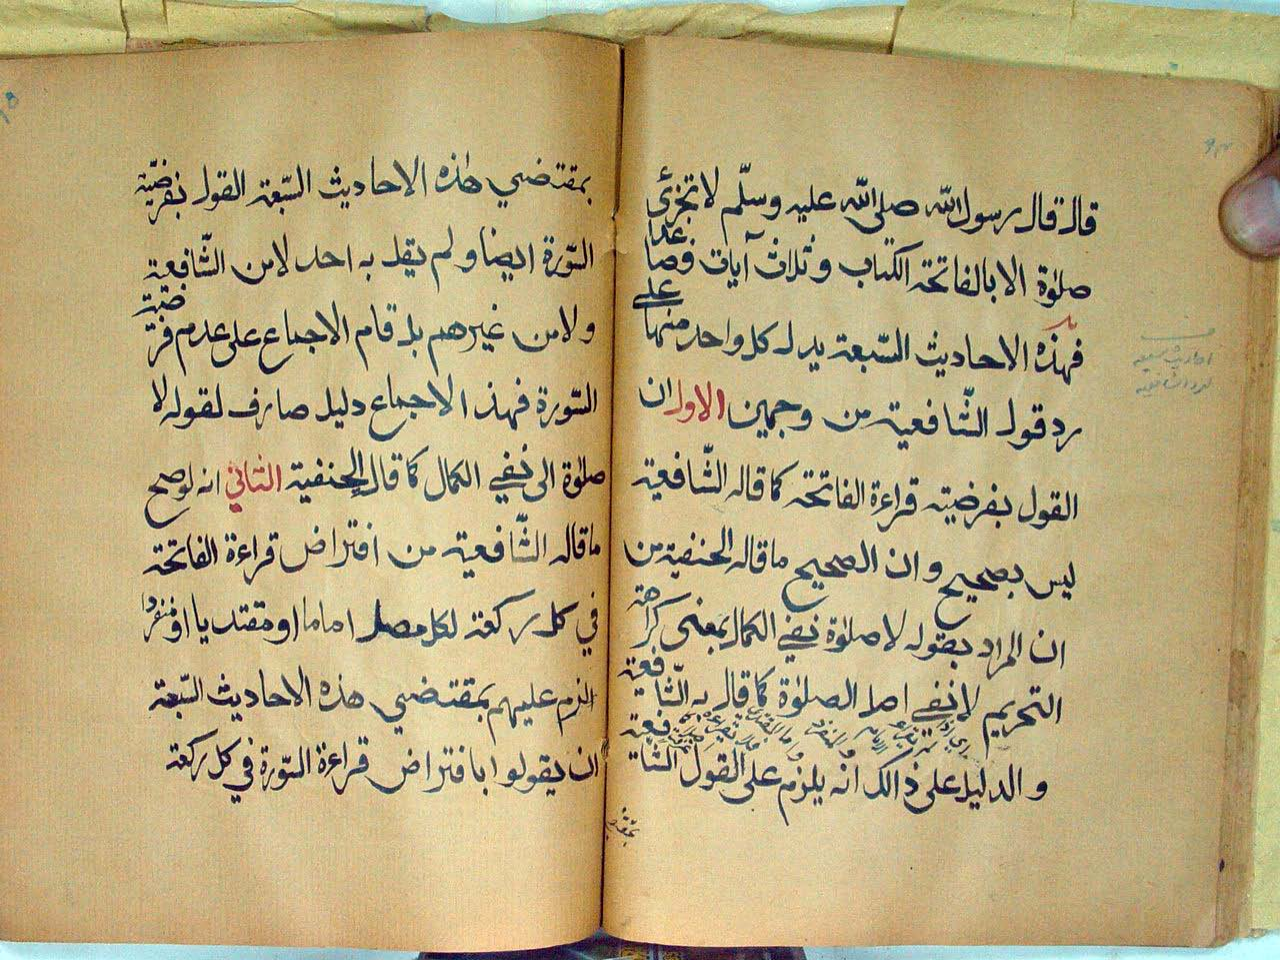 قال قال رسول الله صلى الله عليه وسلم لا تجزئ
صلوة الا بالفاتحة الكتاب وثلاث آيات فصاعدا
فهذه الاحاديث السّبعة يدل كل واحد منها على
رد قول الشّافعية من وجهين الاول ان
القول بفرضية قراءة الفاتحة كما قاله الشّافعية
ليس بصحيح وان الصحيح ما قاله الحنفية من
ان المراد بقوله لا صلوة نفي الكمال بمعنى كراهة
التحريم لا نفي اصل الصلوة كما قال به الشّافعية
والدليل على ذالك انه يلزم على القول الشافعية
احاديث سبعة
لرد الشافعية
بمقتضي هذه الاحاديث السّبعة القول بفرضيّة
السّورة ايضا ولم يقل به احد لا من الشّافعية
ولا من غيرهم بل قام الاجماع على عدم فرضية
السّورة فهذا الاجماع دليل صارف لقوله لا
صلوة الى نفي الكمال كما قال الحنفية الثاني انه لو صح
ما قاله الشّافعية من افتراض قراءة الفاتحة
في كل ركعة لكل مصل اماما او مقتديا او منفردا
الزم عليهم بمقتضي هذه الاحاديث السّبعة
ان يقولوا بافتراض قراءة السّورة في كل ركعة